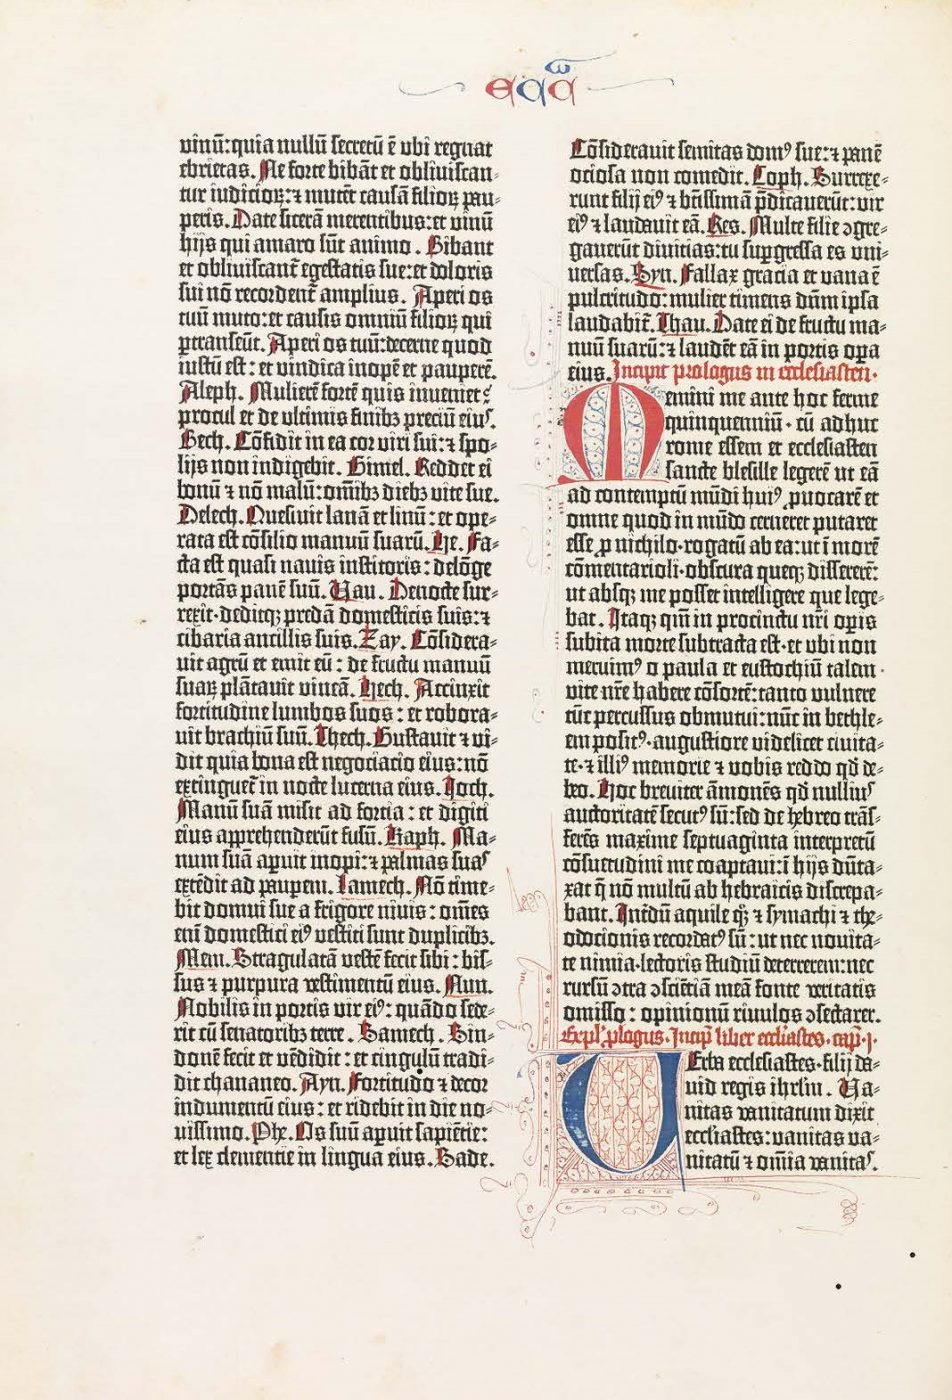 eccͣ
vinū: quia nullū secretū ē ubi regnat
ebrietas. Ne forte bibāt et obliuiscan-
tur iudicioꝝ: ⁊ mutēt causā filioꝝ pau-
peris. Date sicerā merentibus: et vinū
hijs qui amaro sūt animo. Bibant
et obliuiscant᷑ egestatis sue: et doloris
sui nō recordent᷑ amplius. Aperi os
tuū muto: et causis omniū filioꝝ qui
ꝑtranseūt. Aperi os tuū: decerne quod
iustū est: et vindica inopē et pauperē.
Aleph. Mulierē fortē quis inueniet?
procul et de ultimis finibꝫ preciū eiuˢ.
Bech. Cōfidit in ea cor viri sui: ⁊ spo-
lijs non indigebit. Gimel. Reddet ei
bonū ⁊ nō malū: om̄ibꝫ diebꝫ vite sue.
Delech. Quesiuit lanā et linū: et ope-
rata est cōsilio manuū suarū. He. Fa-
cta est quasi nauis institoris: de lōge
portās panē suū. Vau. De nocte sur-
rexit· deditqꝫ predā domesticis suis: ⁊
cibaria ancillis suis. Zay. Cōsidera-
uit agrū et emit eū: de fructu manuū
suaꝝ plātauit vineā. Hech. Accinxit
fortitudine lumbos suos: et robora-
uit brachiū suū. Thech. Gustauit ⁊ vi-
dit quia bona est negociacio eius: nō
extinguet᷑ in nocte lucerna eius. Joch.
Manū suā misit ad fortia: et digiti
eius apprehenderūt fusū. Kaph. Ma-
num suā aperuit inopi: ⁊ palmas suaˢ
extēdit ad pauperem. Lamech. Nō time-
bit domui sue a frigore niuis: om̄es
eni᷑ domestici eiꝰ vestiti sunt duplicibꝫ.
Mem. Stragulatā vestē fecit sibi: bis-
sus ⁊ purpura vestimentū eius. Nun.
Nobilis in portis vir eiꝰ: quādo sede-
rit cū senatoribꝫ terre. Samech. Sin-
donē fecit et vēdidit: et cingulū tradi-
dit chananeo. Ayn. Fortitudo ⁊ decor
indumentū eius: et ridebit in die no-
uissimo. Phe. Os suū aperuit sapiētie:
et lex clementie in lingua eius. Sade.
Cōsiderauit semitas domꝰ sue: ⁊ panē
ociosa non comedit. Coph. Surrexe-
runt filij eiꝰ ⁊ btīssimā p̄dicauerūt: vir
eiꝰ ⁊ laudauit eā. Res. Multe filie ↄgre-
gauerūt diuitias: tu supgressa es vni-
uersas. Syn. Fallax gracia et vana ē
pulcritudo: mulier timens dūm ipsa
laudabit᷑. Thau. Date ei de fructu ma-
nuū suarū: ⁊ laudēt eā in portis opera
eius. Incipit prologus in ecclesiasten·
Memini me ante hoc ferme
quinquenniū· cū adhuc
rome essem et ecclesiasten
sancte blesille legerē· ut eā
ad contemptū mūdi huiꝰ ꝓuocarē et
omne quod in mūdo cerneret putaret
esse ꝓ nichilo· rogatū ab ea: ut ī morē
cōmentarioli· obscura queqꝫ dissererē:
ut absqꝫ me posset intelligere que lege-
bat. Itaqꝫ qm̄ in procinctu nr̄i oꝑis
subita morte subtracta est· et ubi non
meruimꝰ o paula et eustochiū talem·
vite nr̄e habere cōsortē: tanto vulnere
tūc percussus obmutui: nūc in bethle-
em positꝰ· augustiore videlicet ciuita-
te· ⁊ illiꝰ memorie ⁊ vobis reddo qd̄ de-
beo. Hoc breuiter āmonēs qd̄ nulliuˢ
auctoritatē secutꝰ sū: sed de hebreo trās-
ferēs maxime septuaginta interpretū
cōsuetudini me coaptaui: ī hijs dūta-
xat q̄ nō multū ab hebraicis discrepa-
bant. Intdū aquile qꝫ ⁊ symachi ⁊ the-
odocionis recordatꝰ sū: ut nec nouita-
te nimia· lectoris studiū deterrerem: nec
rursū ↄtra ↄsciētiā meā fonte veritatis
omisso: opinionū riuulos ↄsectarer.
Expl' ꝓlogus. Incip̄ liber eccl'iastes. cap̄. j·
Verba ecclesiastes· filij da-
uid regis iherl'm. Va-
nitas vanitatum dixit
ecclesiastes: vanitas va-
nitatū ⁊ om̄ia vanitaˢ.